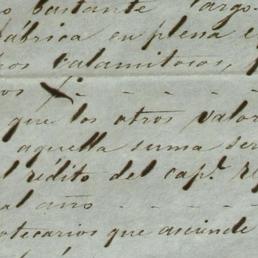 bastante largo
fábrica en plena e
os calamitosos,
os
que los otros valor
aquella suma ser
l rédito del cap.l re
al año
otecarios que asciende